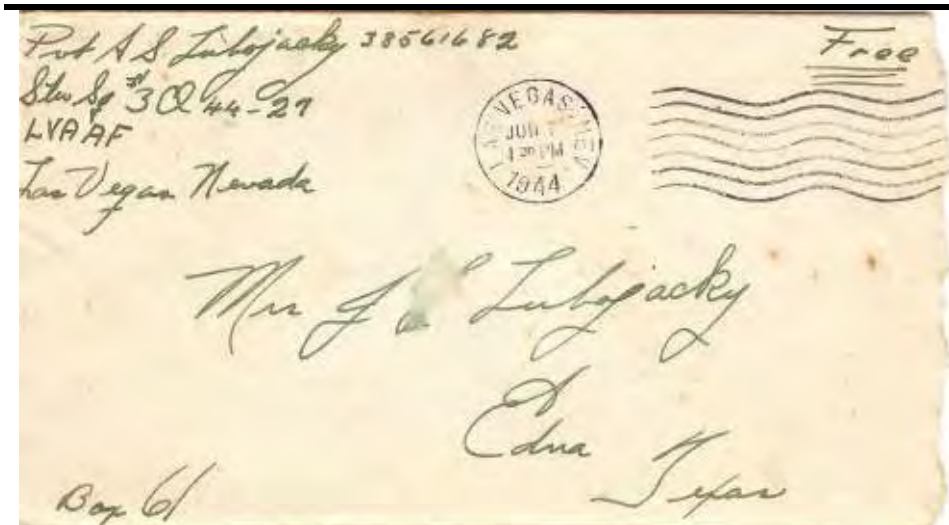 Pvt A S Lubojacky 38561682
Free
Stu Sq #3 Cl 44-27
LVAAF
Las Vegas Nevada
LAS VEGAS, NEV.
JUN
PM
1944
Lubojacky
Edna
Texas
Box 61